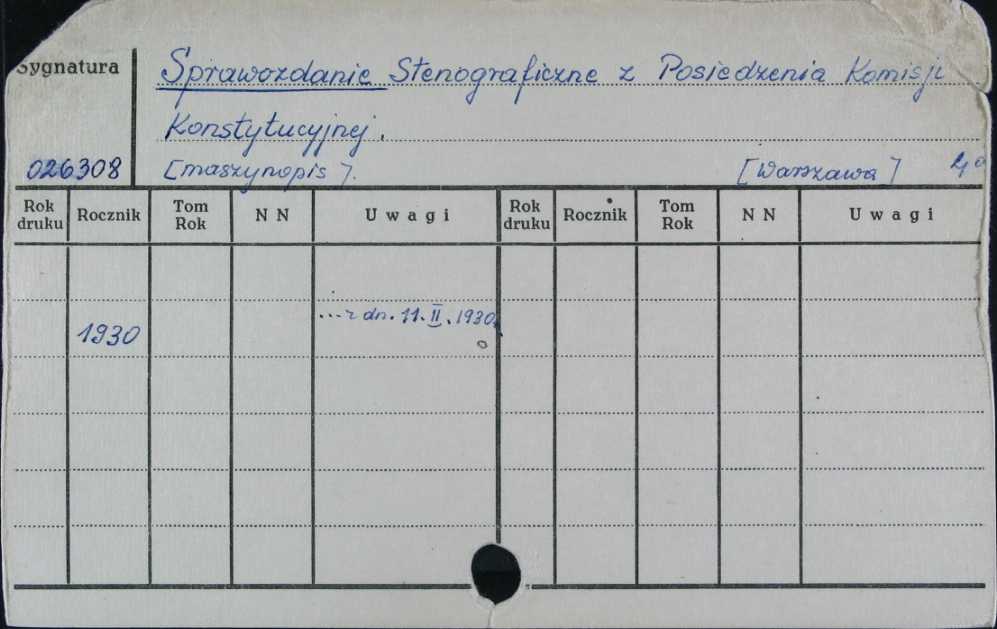 Sygnatura
Sprawozdanie Stenograficzne z Posiedzenia Komisji
Konstytucyjnej.
026308 [maszynopis]. [Warszawa] 4°
Rok druku Rocznik Tom Rok N N Uwagi Rok druku Rocznik Tom Rok N N Uwagi
...z dn. 11. II. 1930.
1930